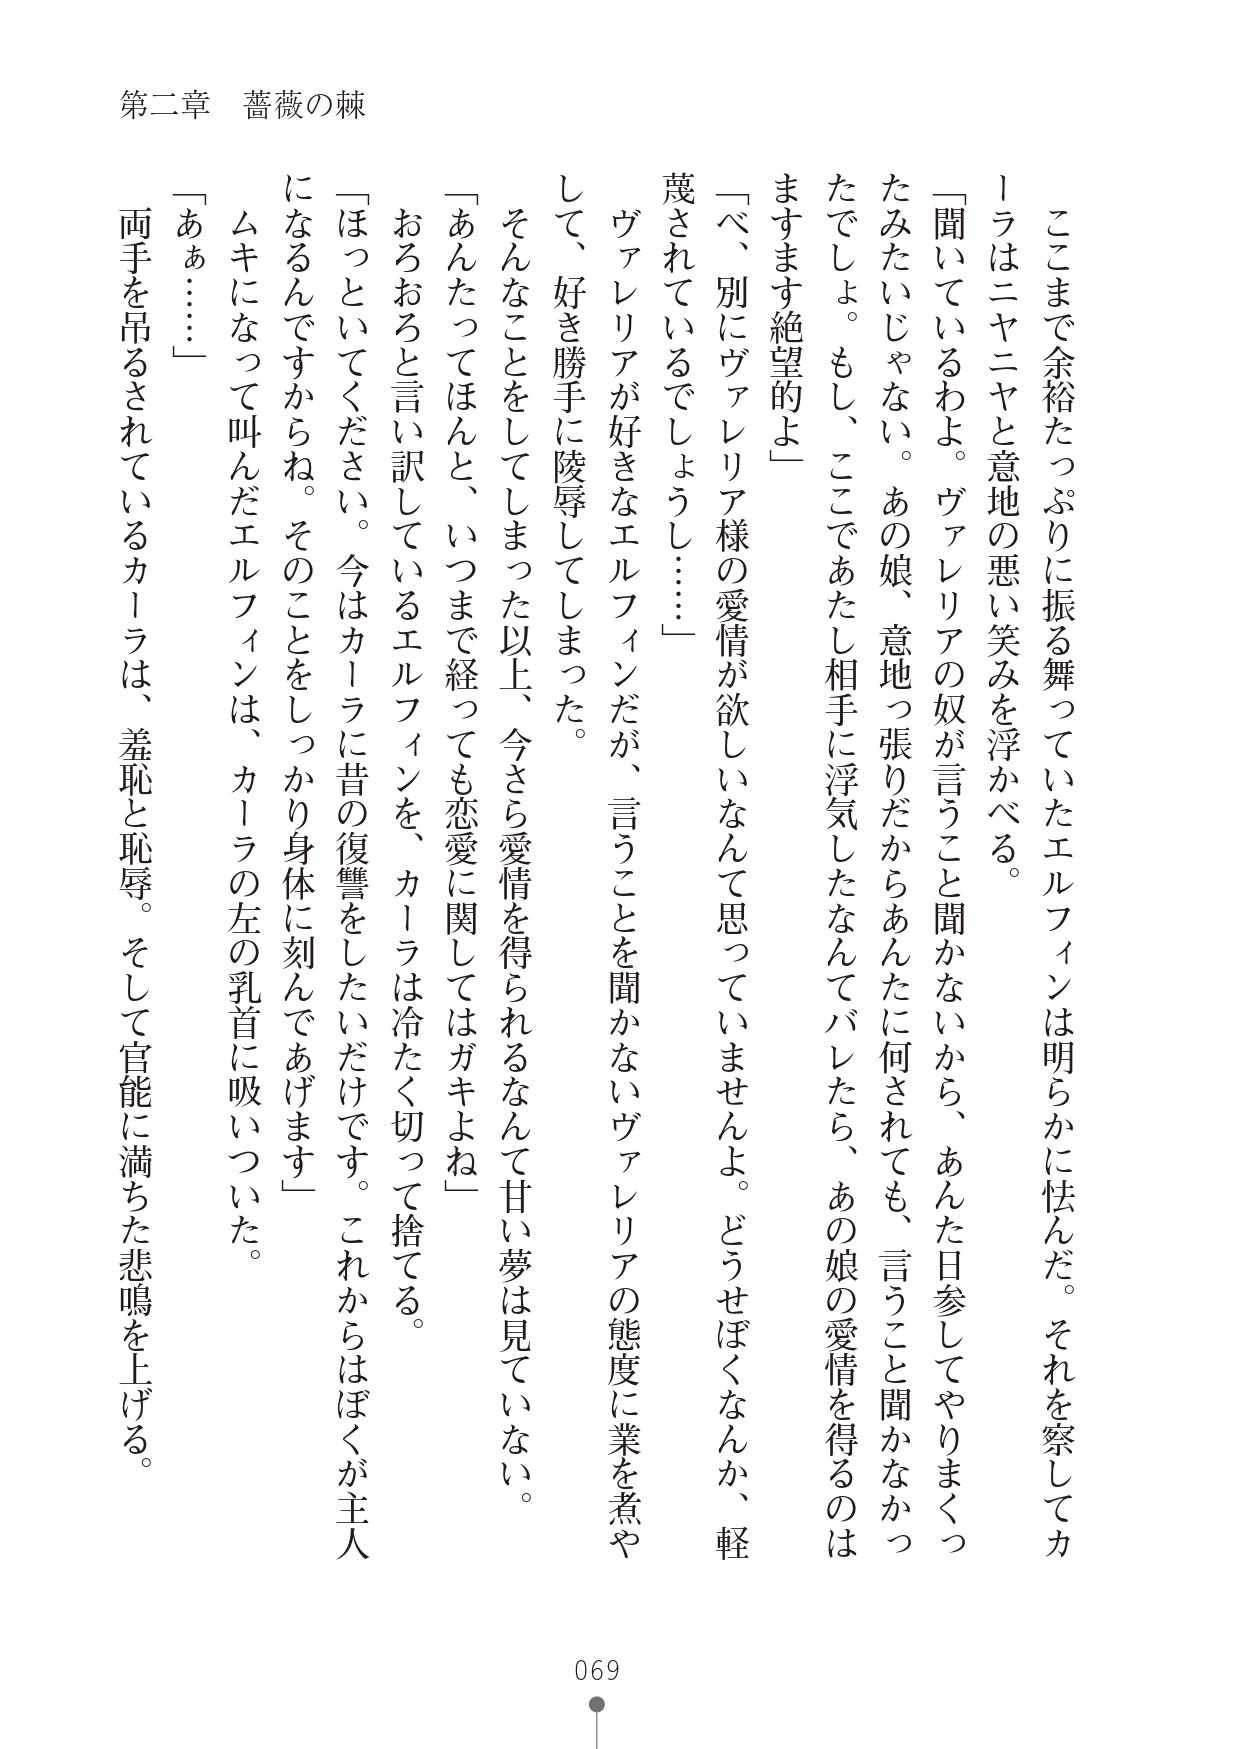 第二章　薔薇の棘
　ここまで余裕たっぷりに振る舞っていたエルフィンは明らかに怯んだ。それを察してカ
ーラはニヤニヤと意地の悪い笑みを浮かべる。
「聞いているわよ。ヴァレリアの奴が言うこと聞かないから、あんた日参してやりまくっ
たみたいじゃない。あの娘、意地っ張りだからあんたに何されても、言うこと聞かなかっ
たでしょ。もし、ここであたし相手に浮気したなんてバレたら、あの娘の愛情を得るのは
ますます絶望的よ」
「べ、別にヴァレリア様の愛情が欲しいなんて思っていませんよ。どうせぼくなんか、軽
蔑されているでしょうし……」
　ヴァレリアが好きなエルフィンだが、言うことを聞かないヴァレリアの態度に業を煮や
して、好き勝手に陵辱してしまった。
　そんなことをしてしまった以上、今さら愛情を得られるなんて甘い夢は見ていない。
「あんたってほんと、いつまで経っても恋愛に関してはガキよね」
　おろおろと言い訳しているエルフィンを、カーラは冷たく切って捨てる。
「ほっといてください。今はカーラに昔の復讐をしたいだけです。これからはぼくが主人
になるんですからね。そのことをしっかり身体に刻んであげます」
　ムキになって叫んだエルフィンは、カーラの左の乳首に吸いついた。
「あぁ……」
　両手を吊るされているカーラは、羞恥と恥辱。そして官能に満ちた悲鳴を上げる。
069